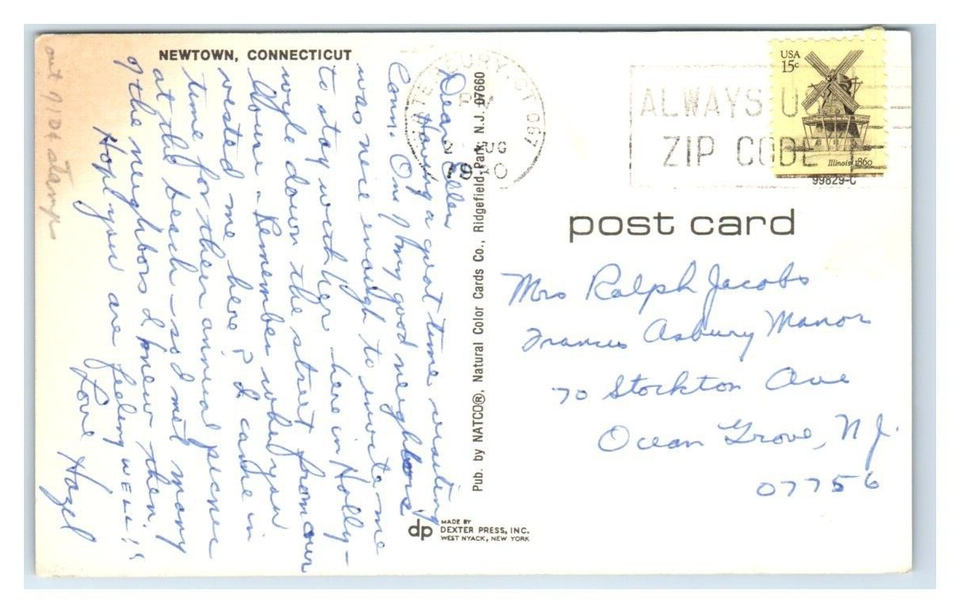 NEWTOWN, CONNECTICUT
Dear Ellen
Having a great time visiting
Conn. One of my good neighbors
was nice enough to invite me
to stay with her here in Holly-
wyle down the street from our
house. Remember when you
visited me here? I came in
time for their annual picnic
at the beach - so I met many
of the neighbors I knew then.
Hope you are feeling WELL!!
Love Hazel
Pub. by NATCO®, Natural Color Cards Co., Ridgefield Park, N.J. 07660
dp MADE BY
DEXTER PRESS, INC.
WEST NYACK, NEW YORK
WATERBURY CT 067
PM
AUG
ALWAYS U
ZIP CODE
USA
15c
Illinois 1860
99829-C
post card
Mrs Ralph Jacobs
Francis Asbury Manor
70 Stockton Ave
Ocean Grove, N.J.
07756